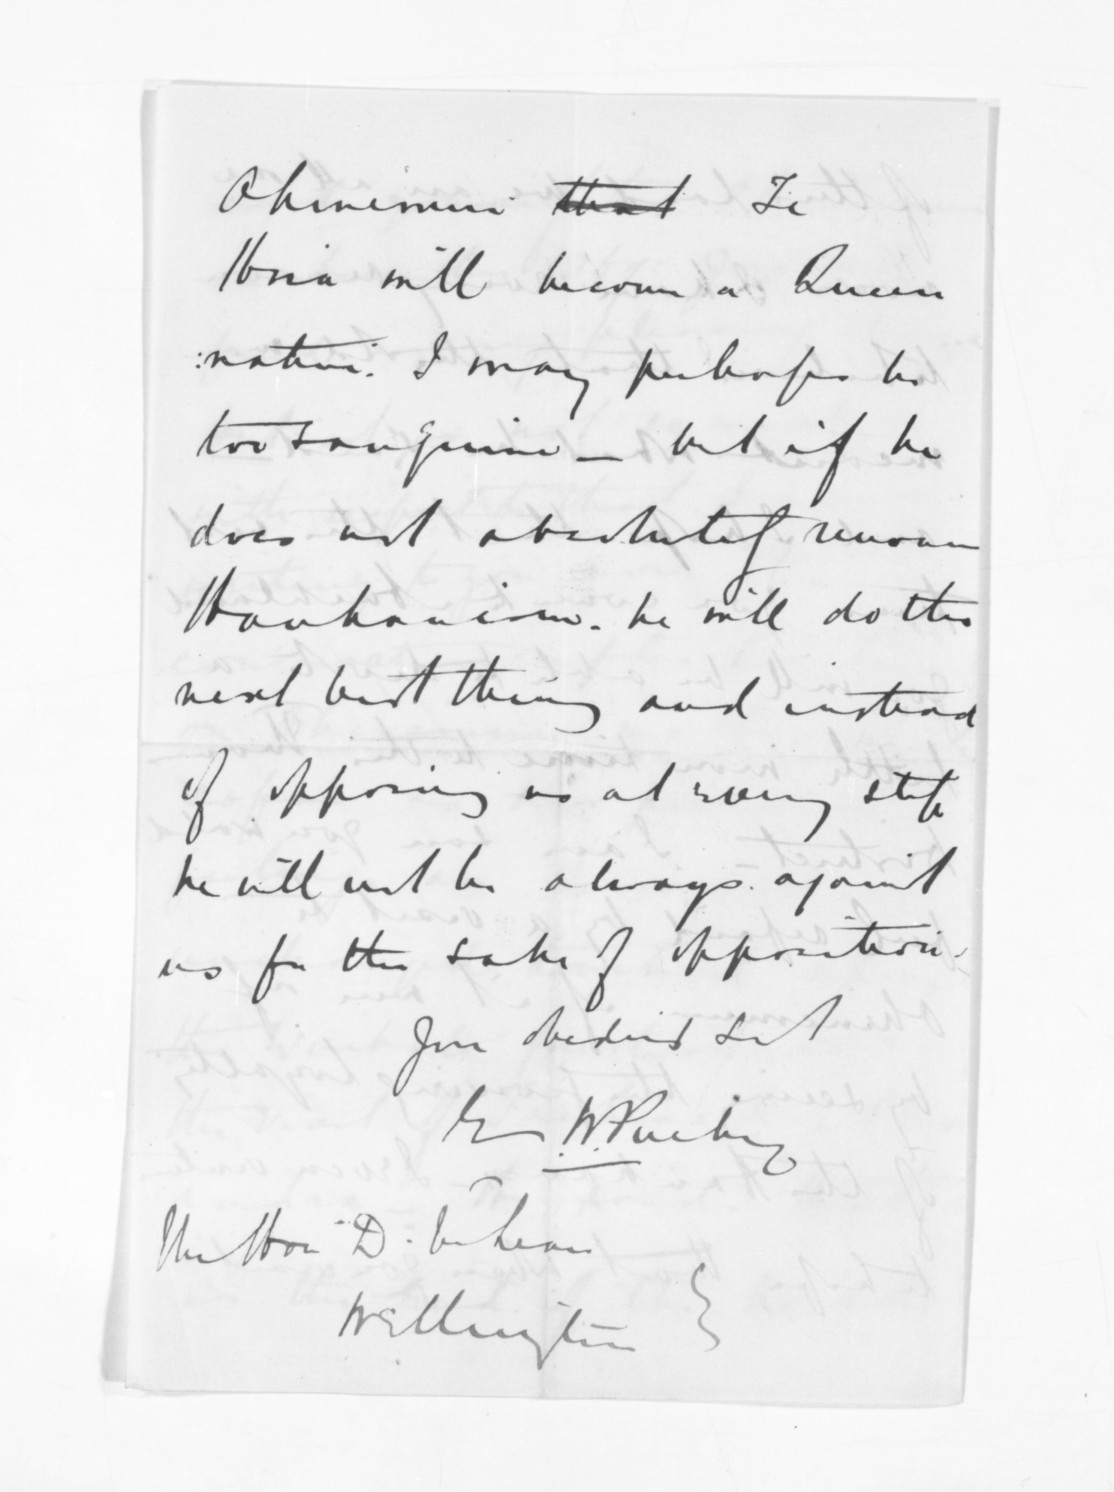 Ohinemuri that Te
Hira will become a Queen
native. I may perhaps be
too sanguine – but if he
does not absolutely renoun
Hauhauism. he will do the
next best thing and instead
of opposing us at every step
he will not be always against
us for the sake of opposition.
Your obedient Svt
E. W. Puckey
The Hon D. McLean
Wellington